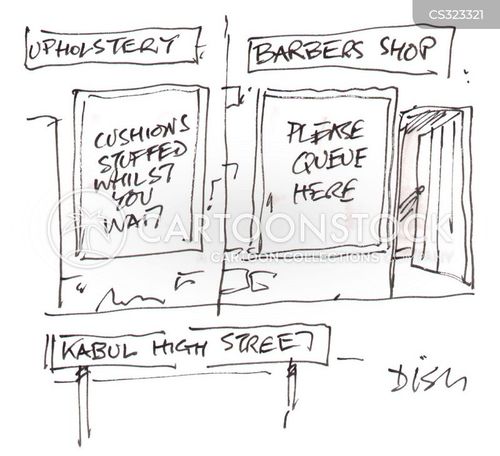 CS323321
UPHOLSTERY
BARBERS SHOP
CUSHIONS
STUFFED
WHILST
YOU
WAIT
PLEASE
QUEUE
HERE
CARTOONSTOCK
CARTOON COLLECTIONS
KABUL HIGH STREET